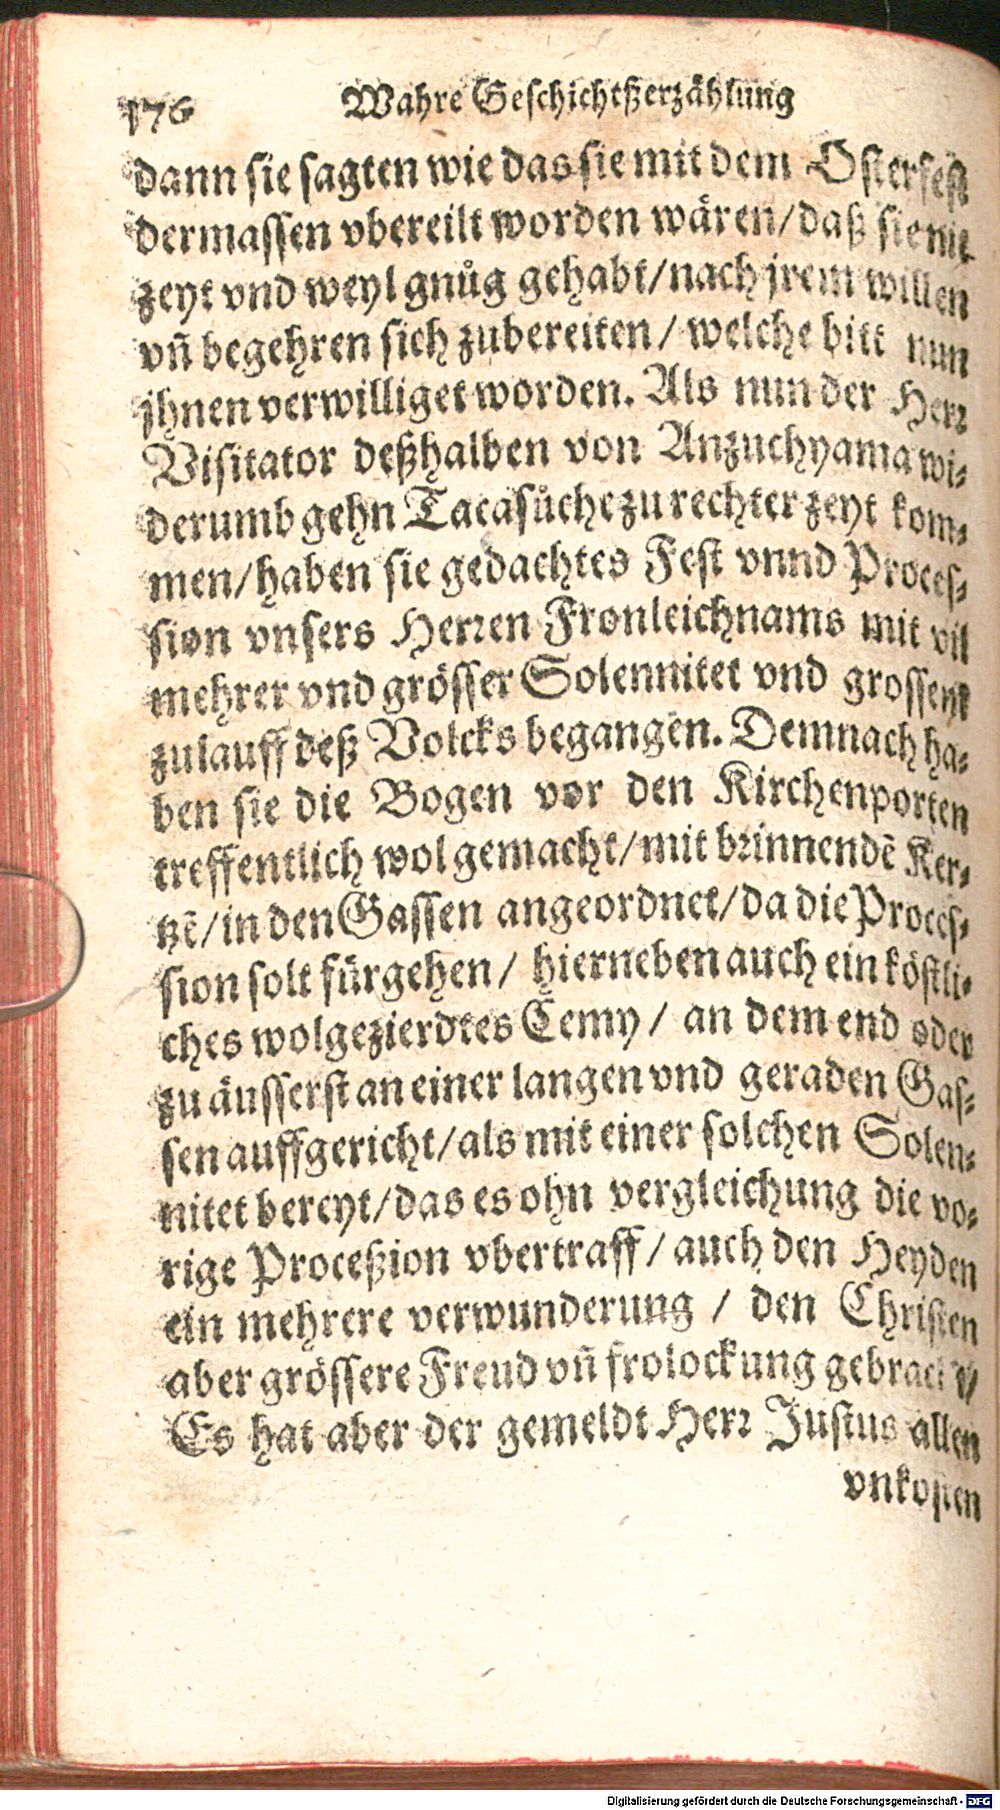 176 Wahre Geschichtßerzählung
dann sie sagten wie das sie mit dem Osterfest
dermassen vbereilt worden wären/ daß sie nit
zeyt vnd weyl gnůg gehabt/ nach jrem willen
vñ begehren sich zubereiten/ welche bitt nun
jhnen verwilliget worden. Als nun der Herr
Visitator deßhalben von Anzuchyama wi-
derumb gehn Tacasůche zu rechter zeyt kom-
men/ haben sie gedachtes Fest vnnd Proces-
sion vnsers Herren Fronleichnams mit vil
mehrer vnd grösser Solennitet vnd grossem
zulauff deß Volcks begangen. Demnach ha-
ben sie die Bogen vor den Kirchenporten
treffentlich wol gemacht/ mit brinnendẽ Ker-
tzẽ/ in den Gassen angeordnet/ da die Proces-
sion solt fürgehen/ hierneben auch ein köstli-
ches wolgezierdtes Cemy/ an dem end oder
zu äusserst an einer langen vnd geraden Gas-
sen auffgericht/ als mit einer solchen Solen-
nitet bereyt/ das es ohn vergleichung die vo-
rige Proceßion vbertraff/ auch den Heyden
ein mehrere verwunderung/ den Christen
aber grössere Freud vñ frolockung gebracht/
Es hat aber der gemeldt Herr Justus allen
vnkosten
Digitalisierung gefördert durch die Deutsche Forschungsgemeinschaft - DFG